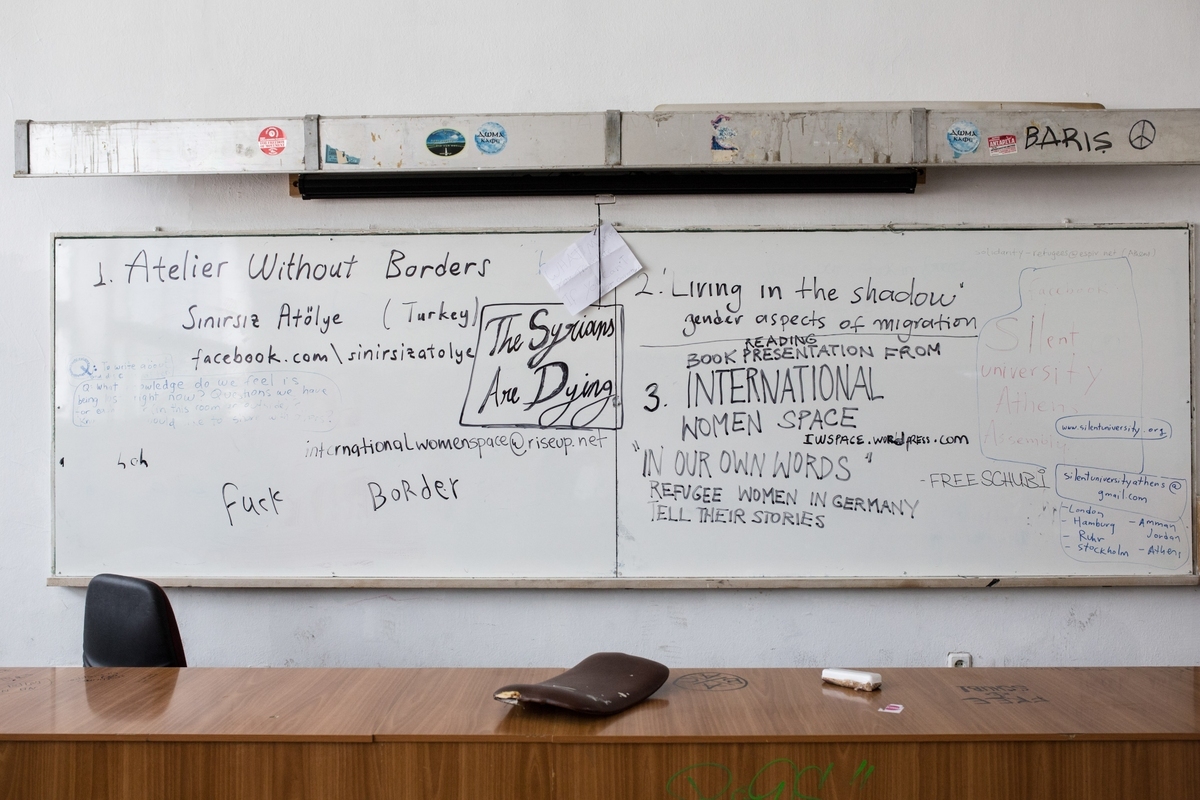 ΔΩΜΑ
ΚΑΦΕ
ΔΩΜΑ
ΚΑΦΕ
ΑΝΤΑΡΣΥΑ
BARIŞ
1. Atelier Without Borders
Sınırsız Atölye (Turkey)
facebook.com\sinirsizatolye
The Syrians
Are Dying
Q: what
do we feel is
right now? Questions we have
in this room
internationalwomenspace@riseup.net
Fuck BoRder
2. "Living in the shadow"
gender aspects of migration
READING
BOOK PRESENTATION FROM
3. INTERNATIONAL
WOMEN SPACE
IWSPACE.WORDPRESS.COM
"IN OUR OWN WORDS"
REFUGEE WOMEN IN GERMANY
TELL THEIR STORIES
- FREE SCHUBI
facebook
Silent
university
Athens
Assembly
www.silentuniversity.org
silentuniversityathens@
gmail.com
- London
- Hamburg
- Ruhr
- Stockholm
- Amman
Jordan
- Athens
FREE
SCHUBI
DOGS!!